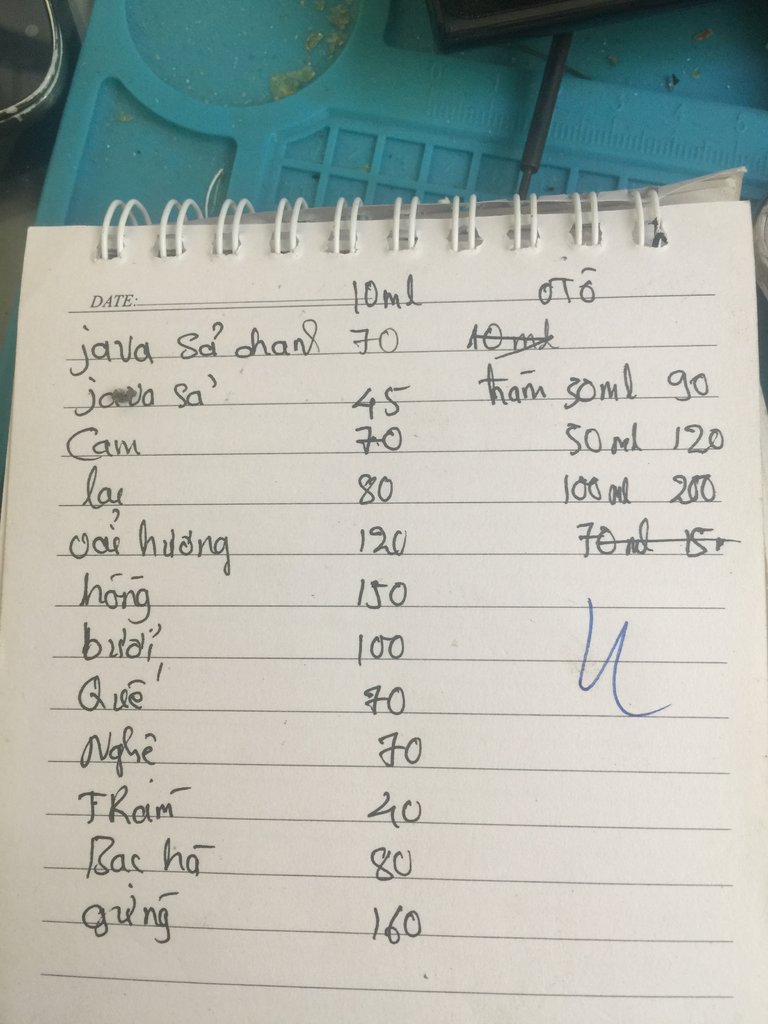 DATE: 10ml OTÔ
java sả chanh 70 10ml
java sả 45 tràm 30ml 90
Cam 70 50ml 120
lài 80 100ml 200
oải hương 120 70ml 15
hồng 150
bưởi 100
Quế 70
Nghệ 70
TRàm 40
Bạc hà 80
gừng 160